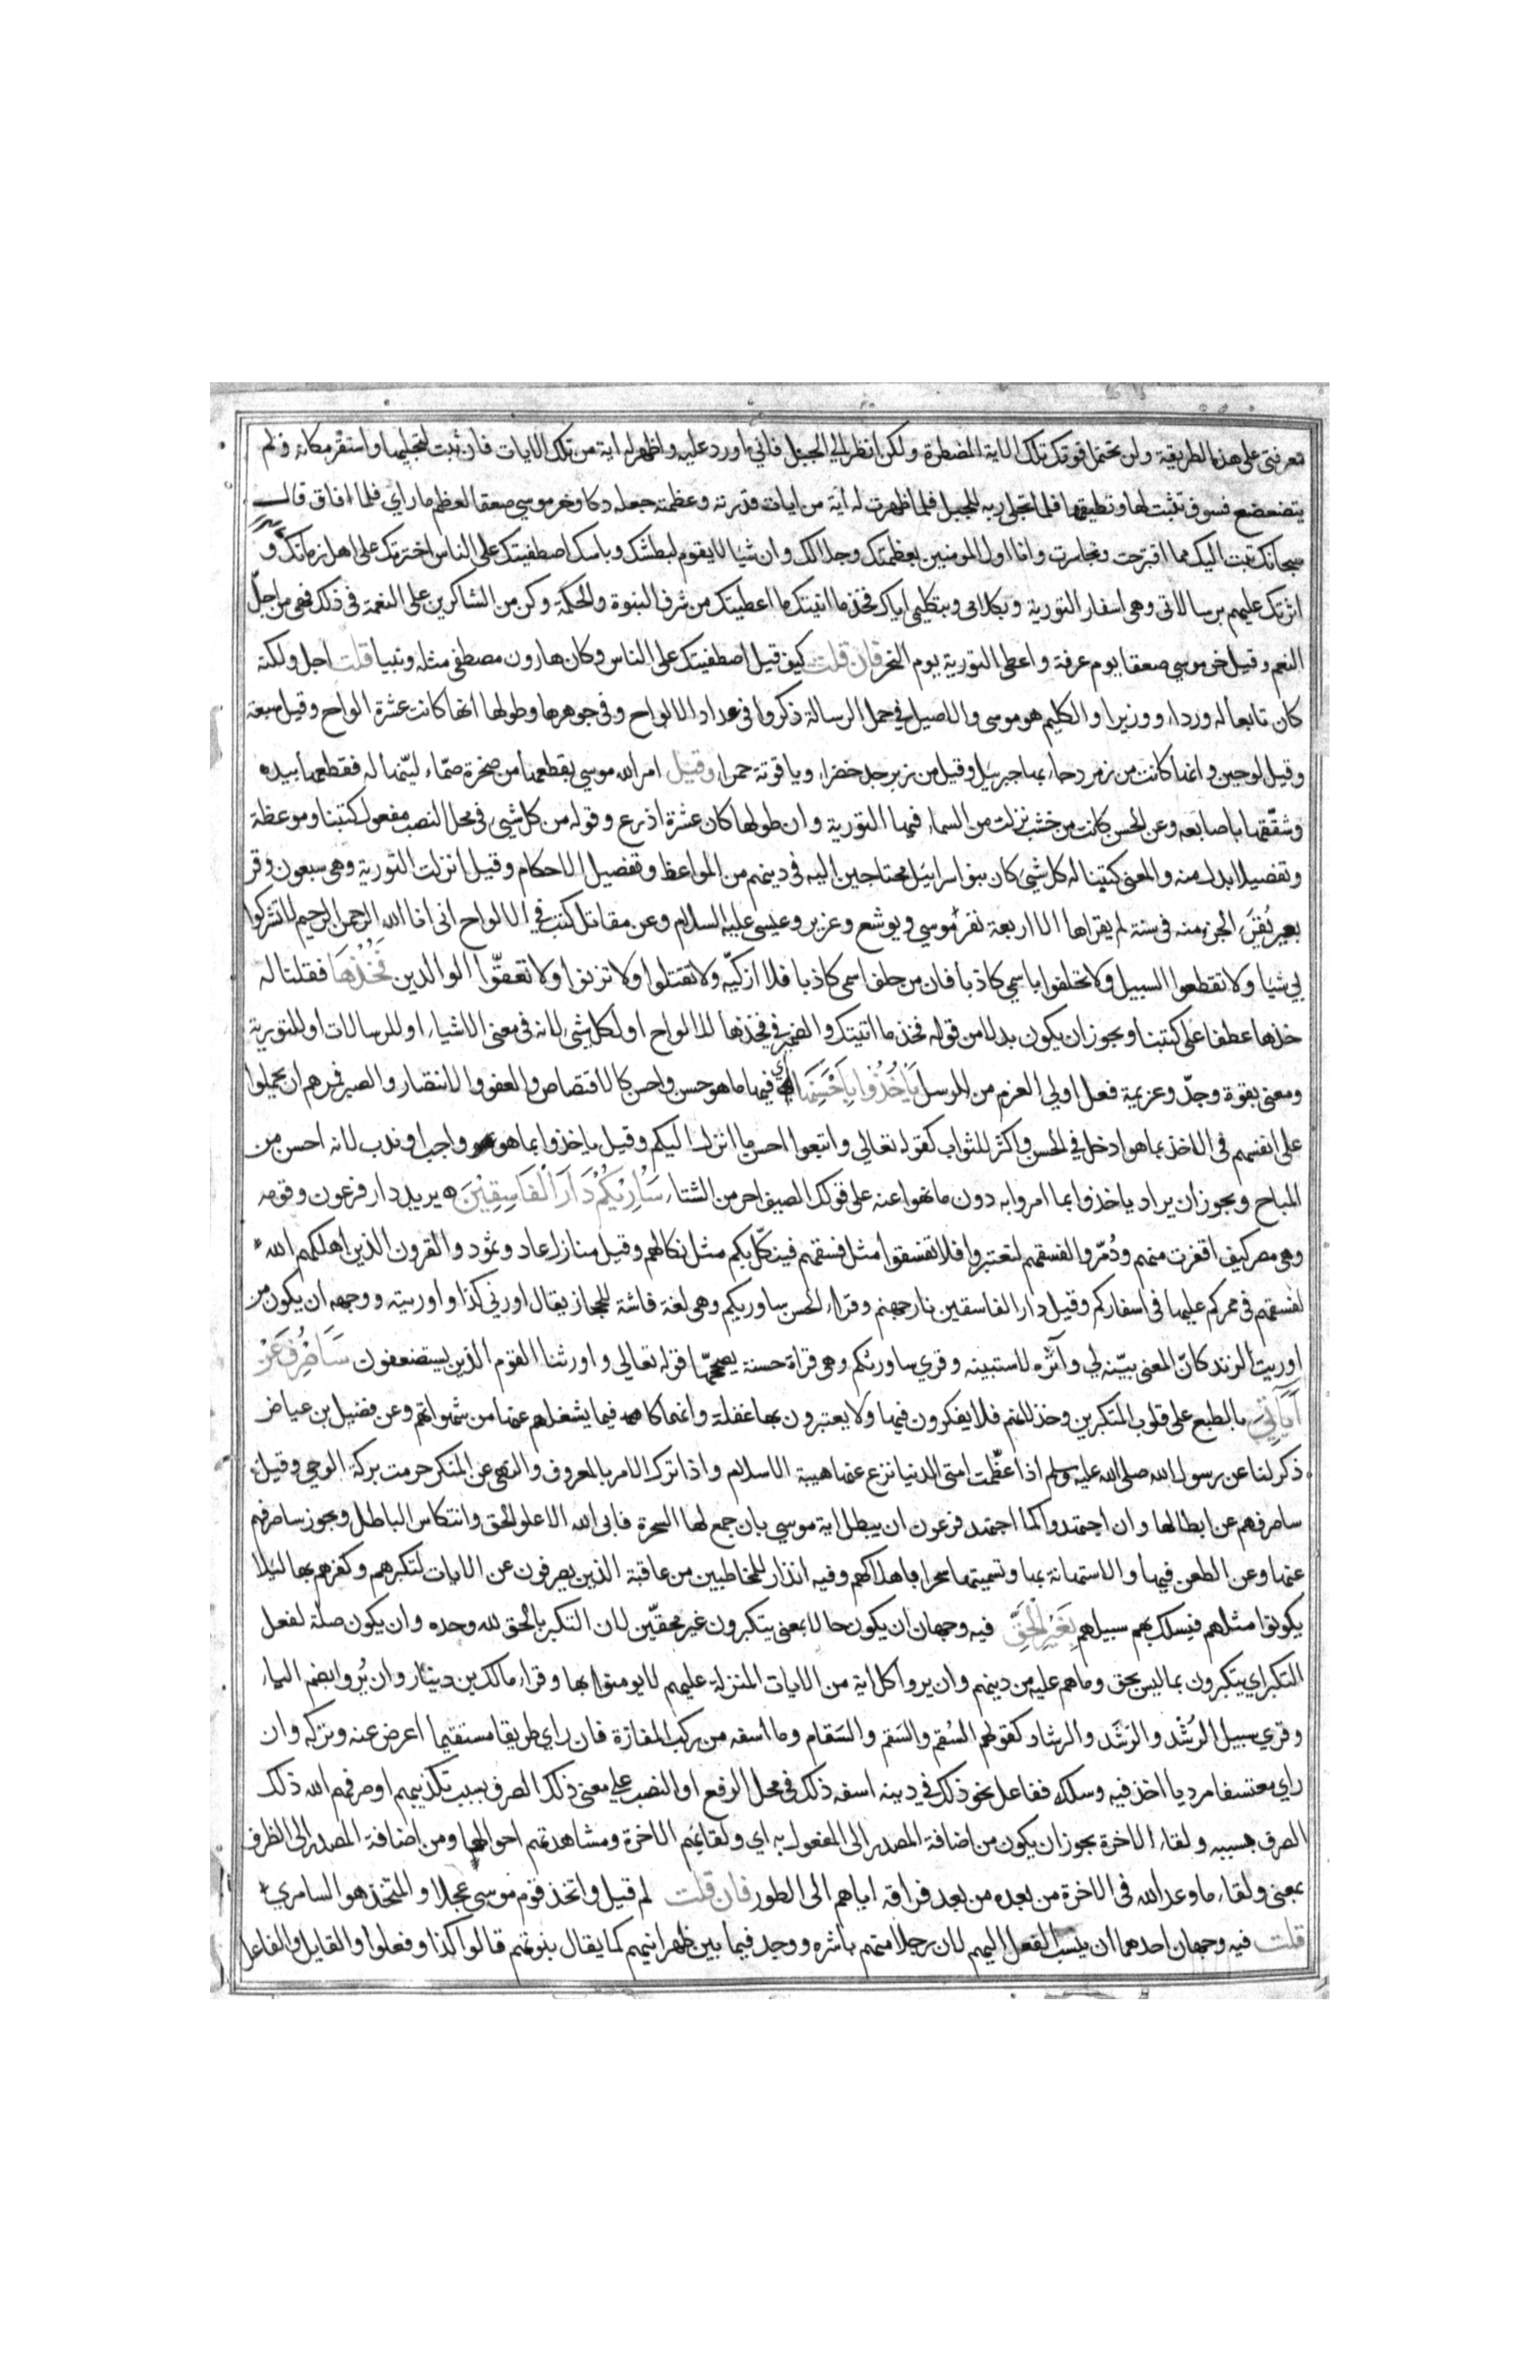 معرفتي على هذه الطريقة ولن تحتمل قوتك تلك الاية المضطرة ولكن انظر الي الجبل فاني اورد عليه واظهر له اية من تلك الايات فان ثبت لتجليها واستقر مكانه ولم
يتضعضع فسوف تثبت لها وتطيقها فلما تجلى ربه للجبل فلما ظهرت له آية من ايات قدرته وعظمته جعله دكا وخر موسي صعقا لعظم ما راي فلما افاق قال
سبحانك تبت اليك مما اقترحت وتجاسرت وانا اول المومنين بعظمتك وجلالك وان شيا لا يقوم لبطشك وباسك اصطفيتك على الناس اخترتك على اهل زمانك و
اثرتك عليهم برسالاتي وهي اسفار التورية وبكلامي وبتكليمي اياك فخذ ما اتيتك ما اعطيتك من شرف النبوة والحكمة وكن من الشاكرين على النعمة في ذلك فهي من اجلّ
النعم وقيل خر موسي صعقا يوم عرفة واعطي التورية يوم النحر فان قلت كيف قيل اصطفيتك على الناس وكان هارون مصطفى مثله ونبيا قلت اجل ولكنه
كان تابعا له وردءا ووزيرا والكليم هو موسى والاصيل في حمل الرسالة ذكروا في عدد الالواح وفي جوهرها وطولها انها كانت عشرة الواح وقيل سبعة
وقيل لوحين وانها كانت من زمرد جاء بها جبرئيل وقيل من زبرجد خضراء وياقوتة حمراء وقيل امر الله موسى بقطعها من صخرة صمّاء ليّنها له فقطعها بيده
وشقّقها باصابعه وعن الحسن كانت من خشب نزلت من السماء فيها التورية وان طولها كان عشرة اذرع وقوله من كل شيء في محل النصب مفعول كتبنا وموعظة
وتفصيلا بدل منه والمعنى كتبنا له كل شي كان بنو اسرائيل محتاجين اليه في دينهم من المواعظ وتفصيل الاحكام وقيل انزلت التورية وهي سبعون وقر
بعير يُقرَء الجزء منه في سنة لم يقراها الا اربعة نفر موسي ويوشع وعزير وعيسى عليه السلام وعن مقاتل كتب في الالواح اني انا الله الرحمن الرحيم لا تشركوا
بي شيا ولا تقطعوا السبيل ولا تحلفوا باسمي كاذبا فان من حلف باسمي كاذبا فلا ازكيّه ولا تقتلوا ولا تزنوا ولا تعقّوا الوالدين فَخُذْهَا فقلنا له
خذها عطفا على كتبنا ويجوز ان يكون بدلا من قوله فخذ ما اتيتك والضمير في فخذها للالواح او لكل شي لانه في معنى الاشياء او للرسالات او للتورية
ومعنى بقوة وجدّ وعزيمة فعل اولي العزم من الرسل يَأْخُذُوا بِأَحْسَنِهَا اي فيها ما هو حسن واحسن كالاقتصاص والعفو والانتصار والصبر فمرهم ان يحملوا
على انفسهم في الاخذ بما هو ادخل في الحسن واكثر للثواب كقوله تعالي واتبعوا احسن ما انزل اليكم وقيل ياخذوا بما هو واجب او ندب لانه احسن من
المباح ويجوز ان يراد ياخذوا بما امروا به دون ما نهوا عنه على قولك الصيف احر من الشتاء سَأُرِيكُمْ دَارَ الْفَاسِقِينَ يريد دار فرعون وقومه
وهي مصر كيف اقفرت منهم ودُمّروا لفسقهم لتعتبروا فلا تفسقوا مثل فسقهم فينكّل بكم مثل نكالهم وقيل منازل عاد وثمود والقرون الذين اهلكهم الله
لفسقهم في ممركم عليها في اسفاركم وقيل دار الفاسقين نار جهنم وقراء الحسن ساوريكم وهي لغة فاشة للحجاز يقال اورني كذا واوريته ووجهه ان يكون من
اوريت الزند كانّ المعنى بيّنه لي وآثره لاستبينه وقري ساورثكم وهي قراة حسنة يصححها قوله تعالي واورثنا القوم الذين يستضعفون سَأَصْرِفُ عَنْ
آيَاتِيَ بالطبع على قلوب المتكبرين وخذلانهم فلا يفكرون فيها ولا يعتبرون بها غفلة وانهماكا فيما يشغلهم عنها من شهواتهم وعن فضيل بن عياض
ذكر لنا عن رسول الله صلى الله عليه وسلم اذا عظّمت امتي الدنيا نزع عنها هيبة الاسلام واذا ترك الامر بالمعروف والنهي عن المنكر حرمت بركة الوحي وقيل
ساصرفهم عن ابطالها وان اجتهدوا كما اجتهد فرعون ان يبطل اية موسي بان جمع لها السحرة فابى الله الا علو الحق وانتكاس الباطل ويجوز ساصرفهم
عنها وعن الطعن فيها والاستهانة بها وتسميتها سحرا باهلاكهم وفيه انذار للمخاطبين من عاقبة الذين يصرفون عن الايات لتكبرهم وكفرهم بها لئلا
يكونوا مثلهم فيسلك بهم سبيلهم بِغَيْرِ الْحَقِّ فيه وجهان ان يكون حالا بمعنى يتكبرون غير محقّين لان التكبر بالحق لله وحده وان يكون صلة لفعل
التكبر اي يتكبرون بما ليس بحق وما هم عليه من دينهم وان يروا كل اية من الايات المنزلة عليهم لا يومنوا بها وقراء مالك بن دينار وان يُروا بضم الياء
وقري سبيل الرُشْد والرَشَد والرشاد كقولهم السُقم والسَقم والسَقام وما اسفه من ركب المفازة فان راي طريقا مستقيما اعرض عنه وتركه وان
راي معتسفا مرديا اخذ فيه وسلكه ففاعل نحو ذلك في دينه اسفه ذلك في محل الرفع او النصب علي معنى ذلك الصرف بسبب تكذيبهم او صرفهم الله ذلك
الصرف بسببه ولقاء الاخرة يجوز ان يكون من اضافة المصدر الى المفعول به اي ولقائهم الاخرة ومشاهدتهم احوالها ومن اضافة المصدر الى الظرف
بمعنى ولقاء ما وعد الله في الاخرة من بعده من بعد فراقه اياهم الى الطور فان قلت لم قيل واتخذ قوم موسى عجلا والمتخذ هو السامري
قلت فيه وجهان احدهما ان ينسب الفعل اليهم لان رجلا منهم باشره ووجد فيما بين ظهرانيهم كما يقال بنو تميم قالوا كذا وفعلوا والقايل والفاعل